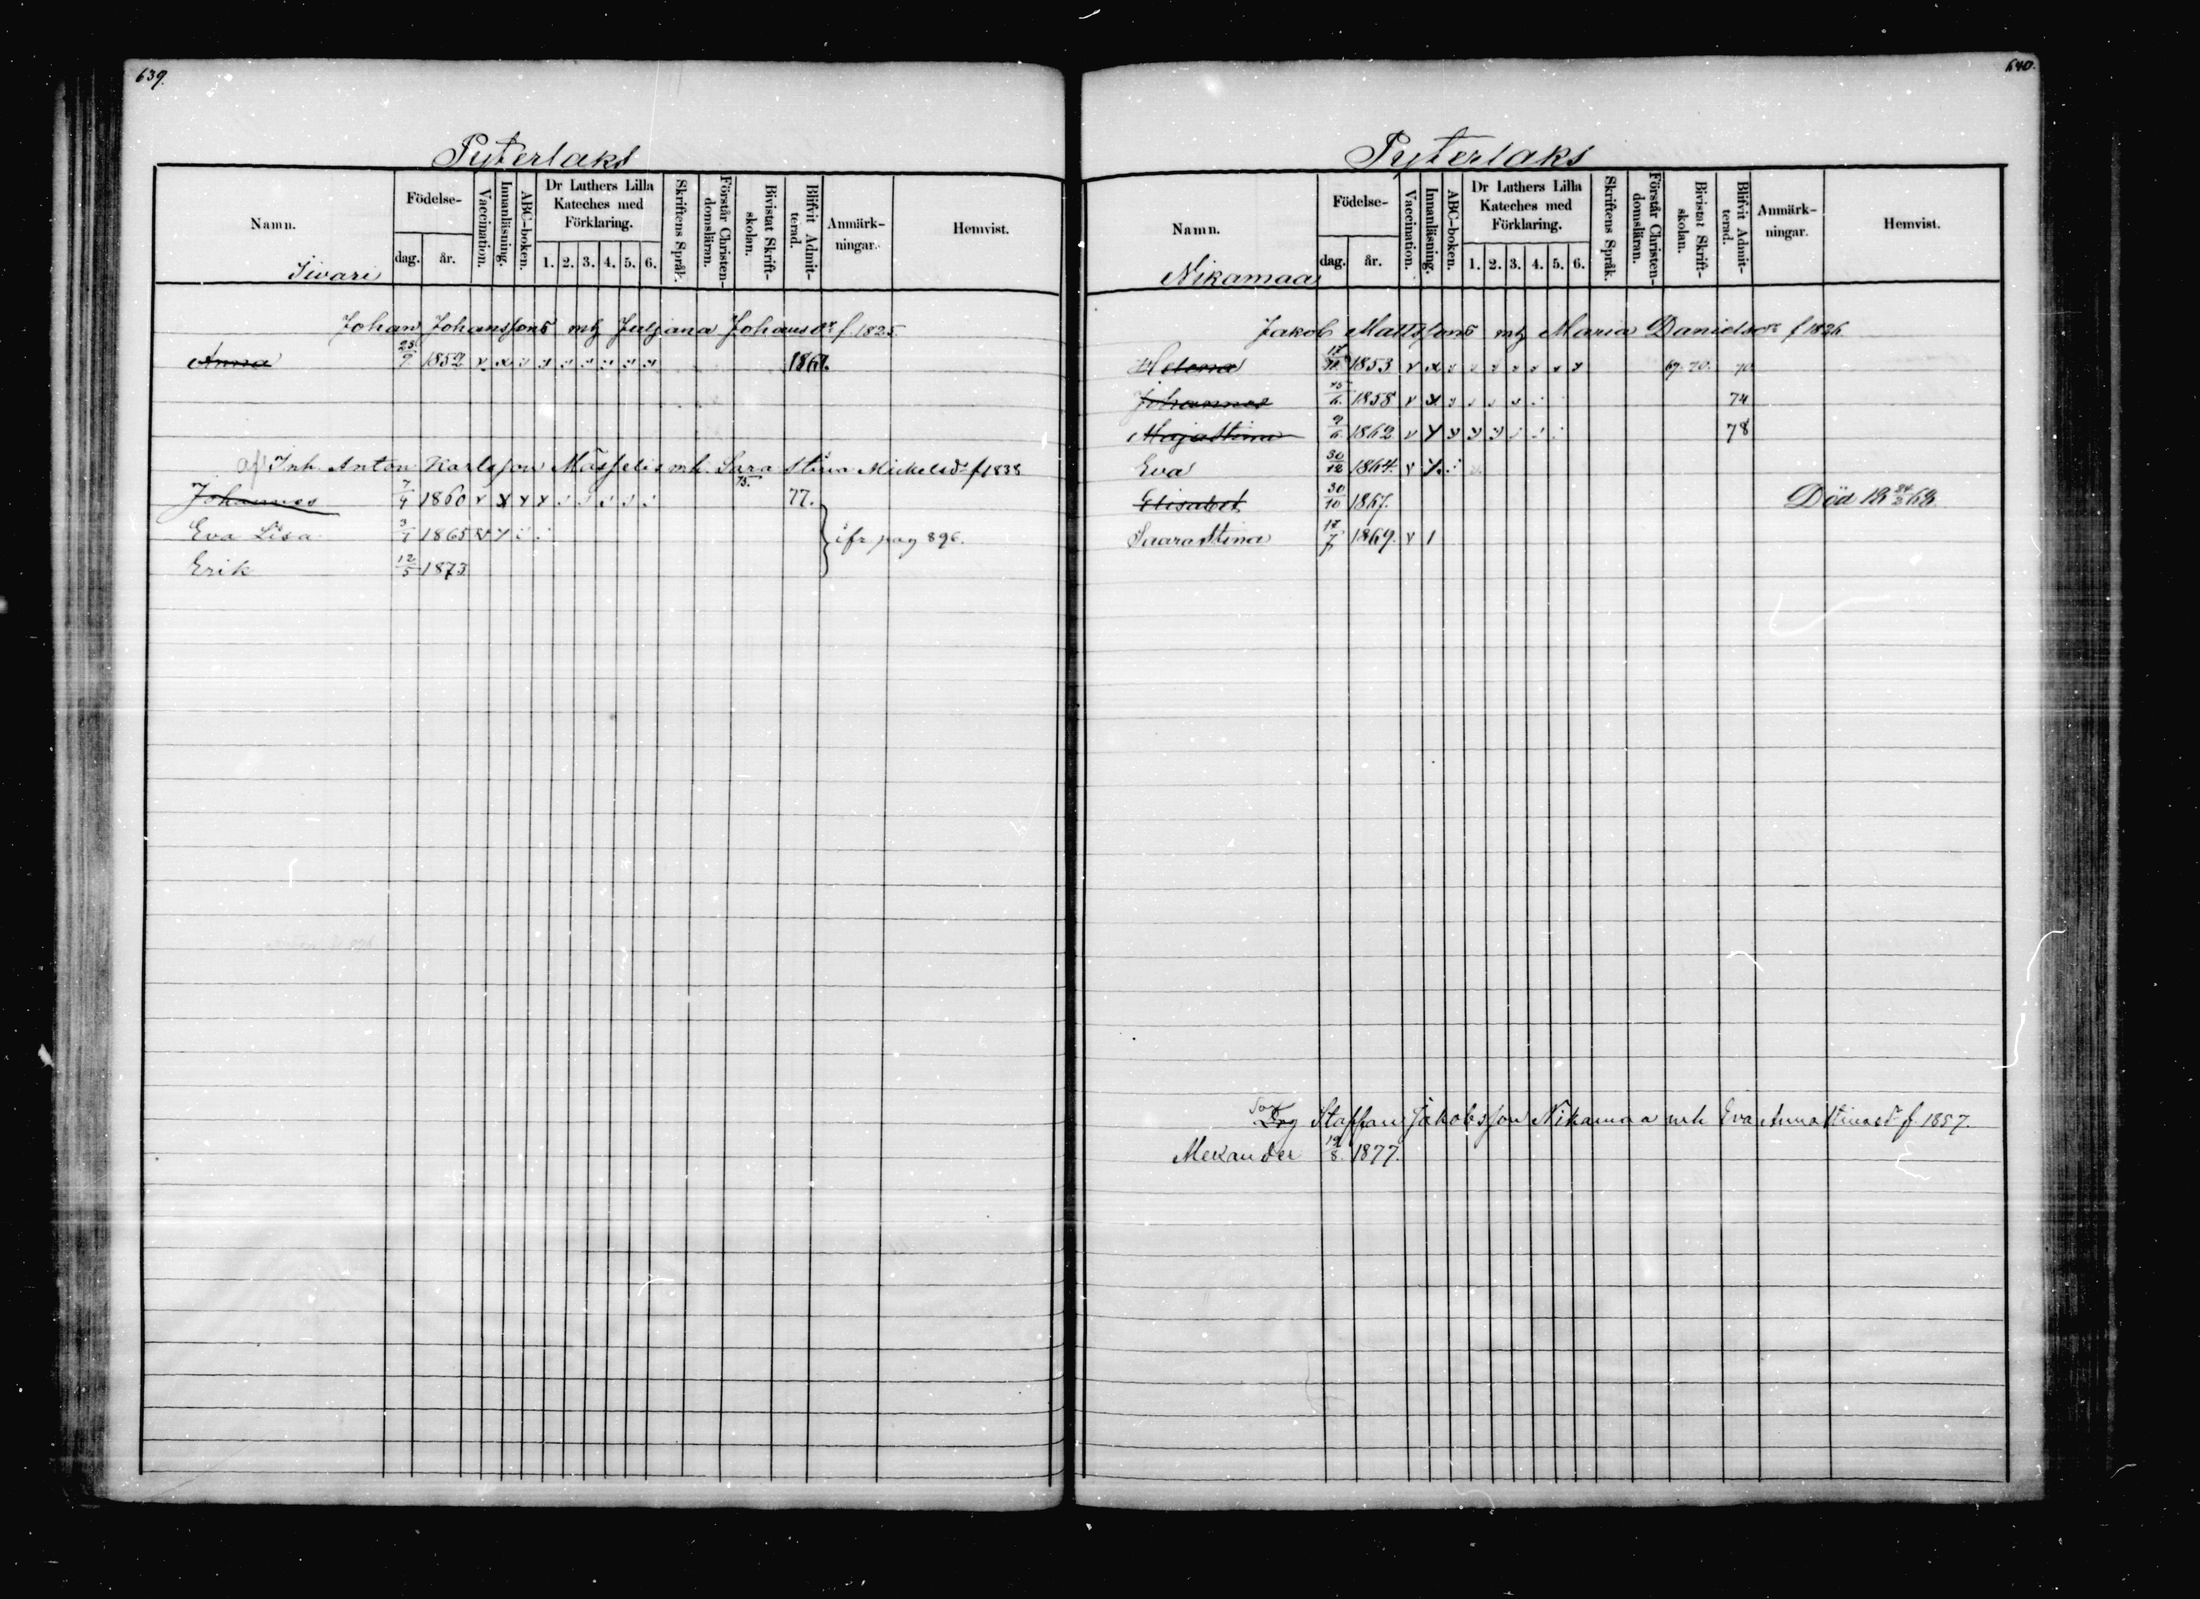 639.
Pyterlaks
Namn.
Födelse-
dag. år.
Vaccination.
Innanläsning.
ABC-boken.
Dr Luthers Lilla Kateches med Förklaring.
1. 2. 3. 4. 5. 6.
Skriftens Språk.
Förstår Christen-domsläran.
Bivistat Skrift-skolan.
Blifvit Admit-terad.
Anmärk-ningar.
Hemvist.
Sivari
Johan Johanssons mh Juljana Johansdr f 1825
Anna 23/9 1852 v x v x v v v v v 1867.
Inh. Anton Karlsson Mässeli mh. Sara Stina Mickelsdr f 1838
Johannes 7/4 1860 v x v x 75. 77.
Eva Lisa 3/1 1865 v v
} ifr pag 896.
Erik 12/5 1873
640.
Pyterlaks
Namn.
Födelse-
dag. år.
Vaccination.
Innanläsning.
ABC-boken.
Dr Luthers Lilla Kateches med Förklaring.
1. 2. 3. 4. 5. 6.
Skriftens Språk.
Förstår Christen-domsläran.
Bivistat Skrift-skolan.
Blifvit Admit-terad.
Anmärk-ningar.
Hemvist.
Nikamaa
Jakob Mattssons mh Maria Danielsdr f 1826
Helena 1853 v x 69. 70. 70
Johannes 15/6 1858 v x 74
Maja Stina 9/6 1862 v v v v v 78
Eva 30/12 1864. v v
Elisabet 30/10 1867. Död 18 24/3 68
Saara Stina 17/7 1869. v 1
Son Drg Staffan Jakobsson Nikamaa mh Eva Anna Stina dr f. 1857.
Alexander 19/8. 1877.